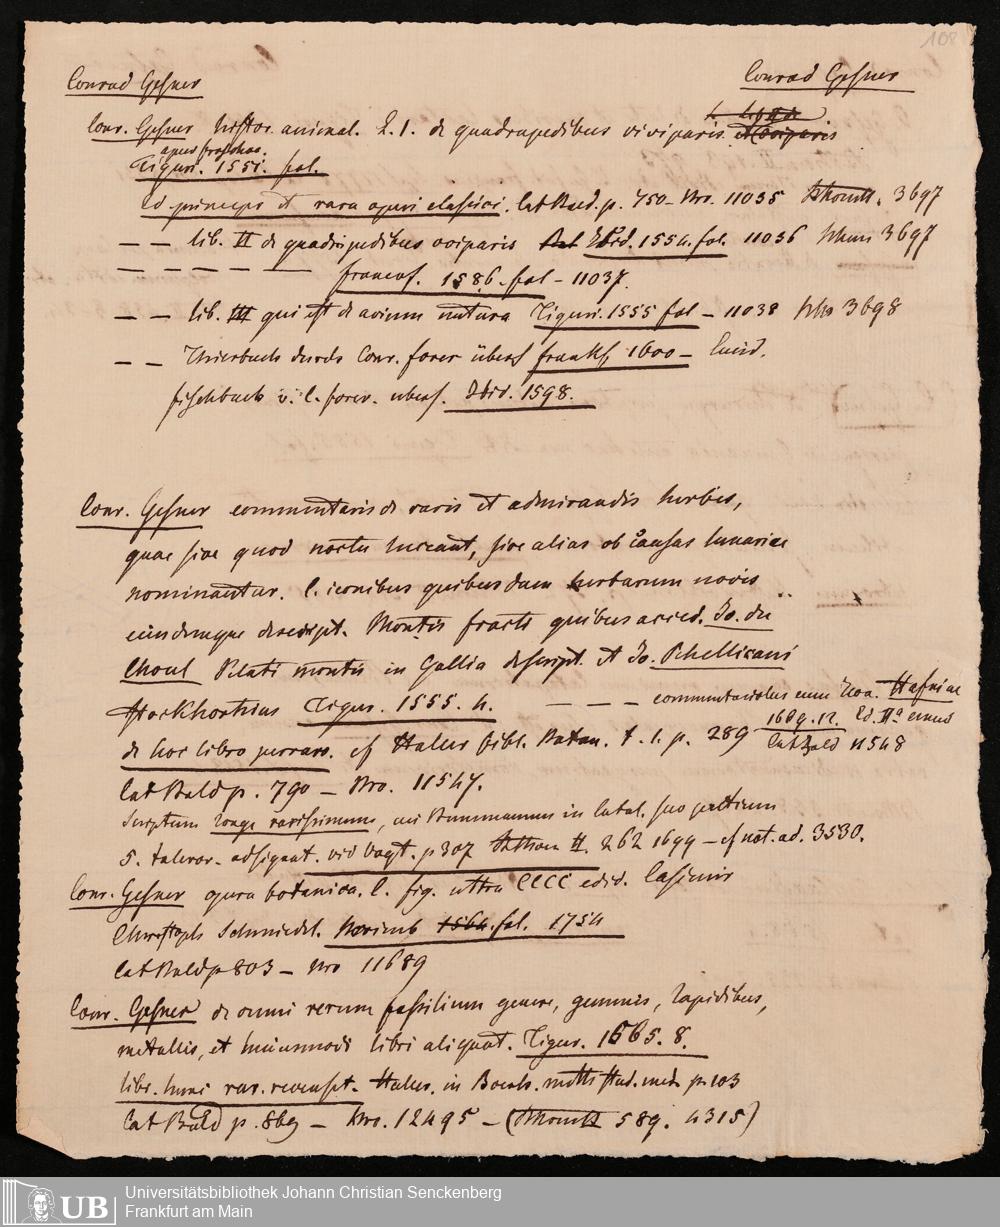 108
Conrad Gesner Conrad Gesner
Conr. Gesner histor. animal. L. 1. de quadrupedibus viviparis. et oviparis
apud froschov.
Tiguri. 1551. fol.
Ed princeps et rara operi classici. Cat Bald. p. 750 – Nro. 11035 3697
– – lib. II de quadrupedibus oviparis Ibid. 1554. fol. 11036 3697
– – – – – – francof. 1586. fol – 11037.
– – lib. III qui est de avium natura Tiguri. 1555 fol – 11038 3698
– – Thierbuch durch Conr. forer übers frankf. 1600 –
fischbuch v. C. forer. übers. Ibid. 1598.
Conr. Gesner commentaris de raris et admirandis herbis,
quae sive quod noctu luceant, sive alias ob causas lunariae
nominantur. C. iconibus quibusdam herbarum novis
eiusdemque descript. Montis fracti quibus acced. Jo. du
Choul Pilati montis in Gallia descript. et Jo. Rhellicani
Stockhornias Tigur. 1555. 4. – – – commentariolus cum Hafniae
de hoc libro perraro. cf Haller bibl. Botan. t. 1. p. 289 1669. 12. Ed. IIa
Cat Bald 11548
Cat Bald p. 790 – Nro. 11547.
Scriptum longe rarissimum, cui Bunemannus in Catal. suo pretium
5. Taleror. adsignat. vid Vogt. p 307 II. 262 1699 – cf not. ad. 3530.
Conr. Gesner opera botanica. C. fig. ultra CCCC edid. Casimir
Christoph Schmiedel. Norimb 1564. fol. 1754
Cat Bald p 803 – Nro 11689
Conr. Gesner de omni rerum fossilium genere, gemmis, lapidibus,
metallis, et huiusmodi libri aliquot. Tigur. 1565. 8.
libr. hunc rar. recenset. Haller. in Boerh. meth. stud. med. p. 103
Cat Bald p. 869 – Nro. 12495 – ( 589. 4315)
UB Universitätsbibliothek Johann Christian Senckenberg
Frankfurt am Main